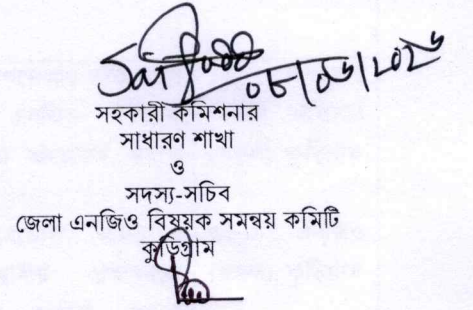 ০৮/০৬/২০২৬
সহকারী কমিশনার
সাধারণ শাখা
ও
সদস্য-সচিব
জেলা এনজিও বিষয়ক সমন্বয় কমিটি
কুড়িগ্রাম